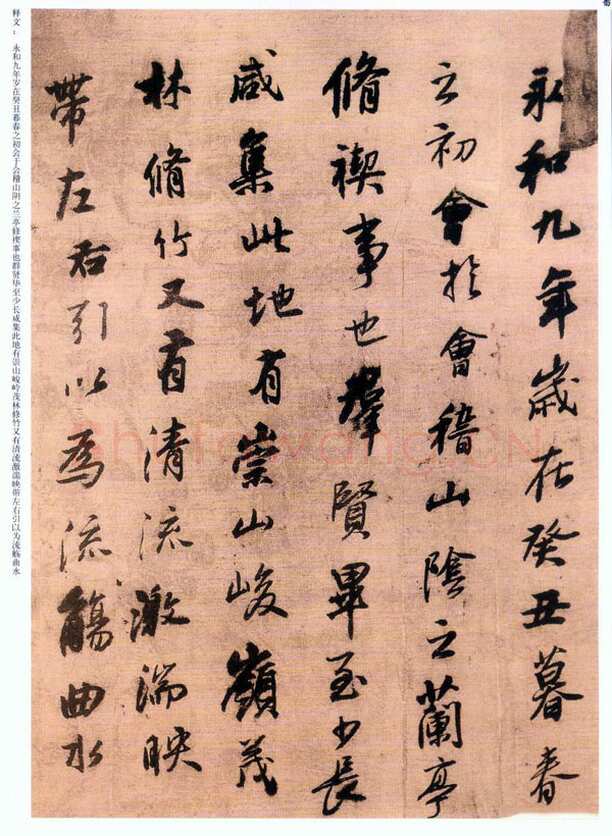 永和九年歲在癸丑暮春
之初會於會稽山陰之蘭亭
脩禊事也羣賢畢至少長
咸集此地有崇山峻嶺茂
林脩竹又有清流激湍映
帶左右引以為流觴曲水
释文：永和九年岁在癸丑暮春之初会于会稽山阴之兰亭修禊事也群贤毕至少长咸集此地有崇山峻岭茂林修竹又有清流激湍映带左右引以为流觞曲水